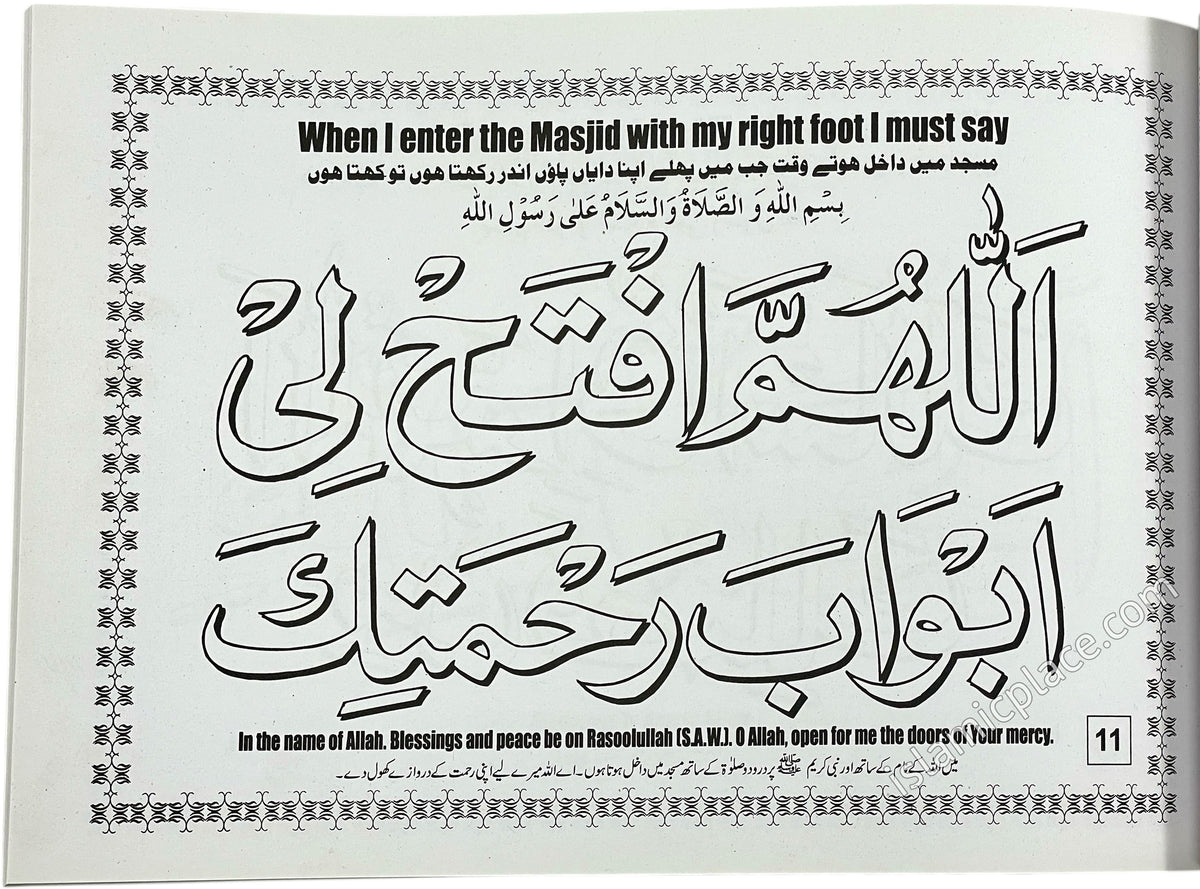 When I enter the Masjid with my right foot I must say
مسجد میں داخل ہوتے وقت جب میں پہلے اپنا دایاں پاؤں اندر رکھتا ہوں تو کہتا ہوں
بِسْمِ اللهِ وَ الصَّلَاةُ وَالسَّلَامُ عَلٰى رَسُوْلِ اللهِ
اَللّٰهُمَّ افْتَحْ لِیْ
اَبْوَابَ رَحْمَتِكَ
In the name of Allah. Blessings and peace be on Rasoolullah (S.A.W.). O Allah, open for me the doors of Your mercy.
میں اللہ کے نام کے ساتھ اور نبی کریم ﷺ پر درود و صلوٰۃ کے ساتھ مسجد میں داخل ہوتا ہوں۔ اے اللہ میرے لیے اپنی رحمت کے دروازے کھول دے۔
11
islamicplace.com